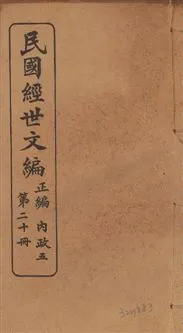 民國經世文編
正編 內政五
第二十冊